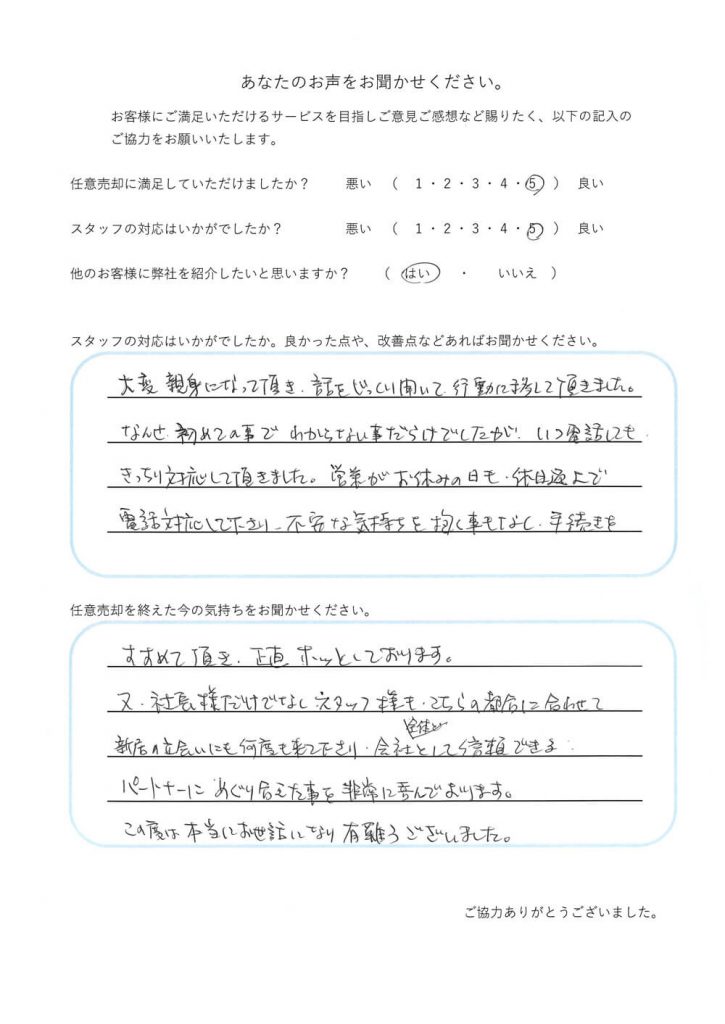 あなたのお声をお聞かせください。
お客様にご満足いただけるサービスを目指しご意見ご感想など賜りたく、以下の記入の
ご協力をお願いいたします。
任意売却に満足していただけましたか？ 悪い （ 1・2・3・4・5 ） 良い
スタッフの対応はいかがでしたか？ 悪い （ 1・2・3・4・5 ） 良い
他のお客様に弊社を紹介したいと思いますか？ （ はい ・ いいえ ）
スタッフの対応はいかがでしたか。良かった点や、改善点などあればお聞かせください。
大変親身になって頂き、話をじっくり聞いて、行動に移して頂きました。
なんせ、初めての事でわからない事だらけでしたが、いつ電話しても
きっちり対応して頂きました。営業がお休みの日も、休日返上で
電話対応して下さり、不安な気持ちを抱く事もなし、手続きを
任意売却を終えた今の気持ちをお聞かせください。
すすめて頂き、正直ホッとしております。
又、社長様だけでなしスタッフ様も、こちらの都合に合わせて
立会いにも何度も来て下さり、会社として信頼できる
パートナーにめぐり合えた事を非常に喜んでおります。
この度は本当にお世話になり有難うございました。
ご協力ありがとうございました。